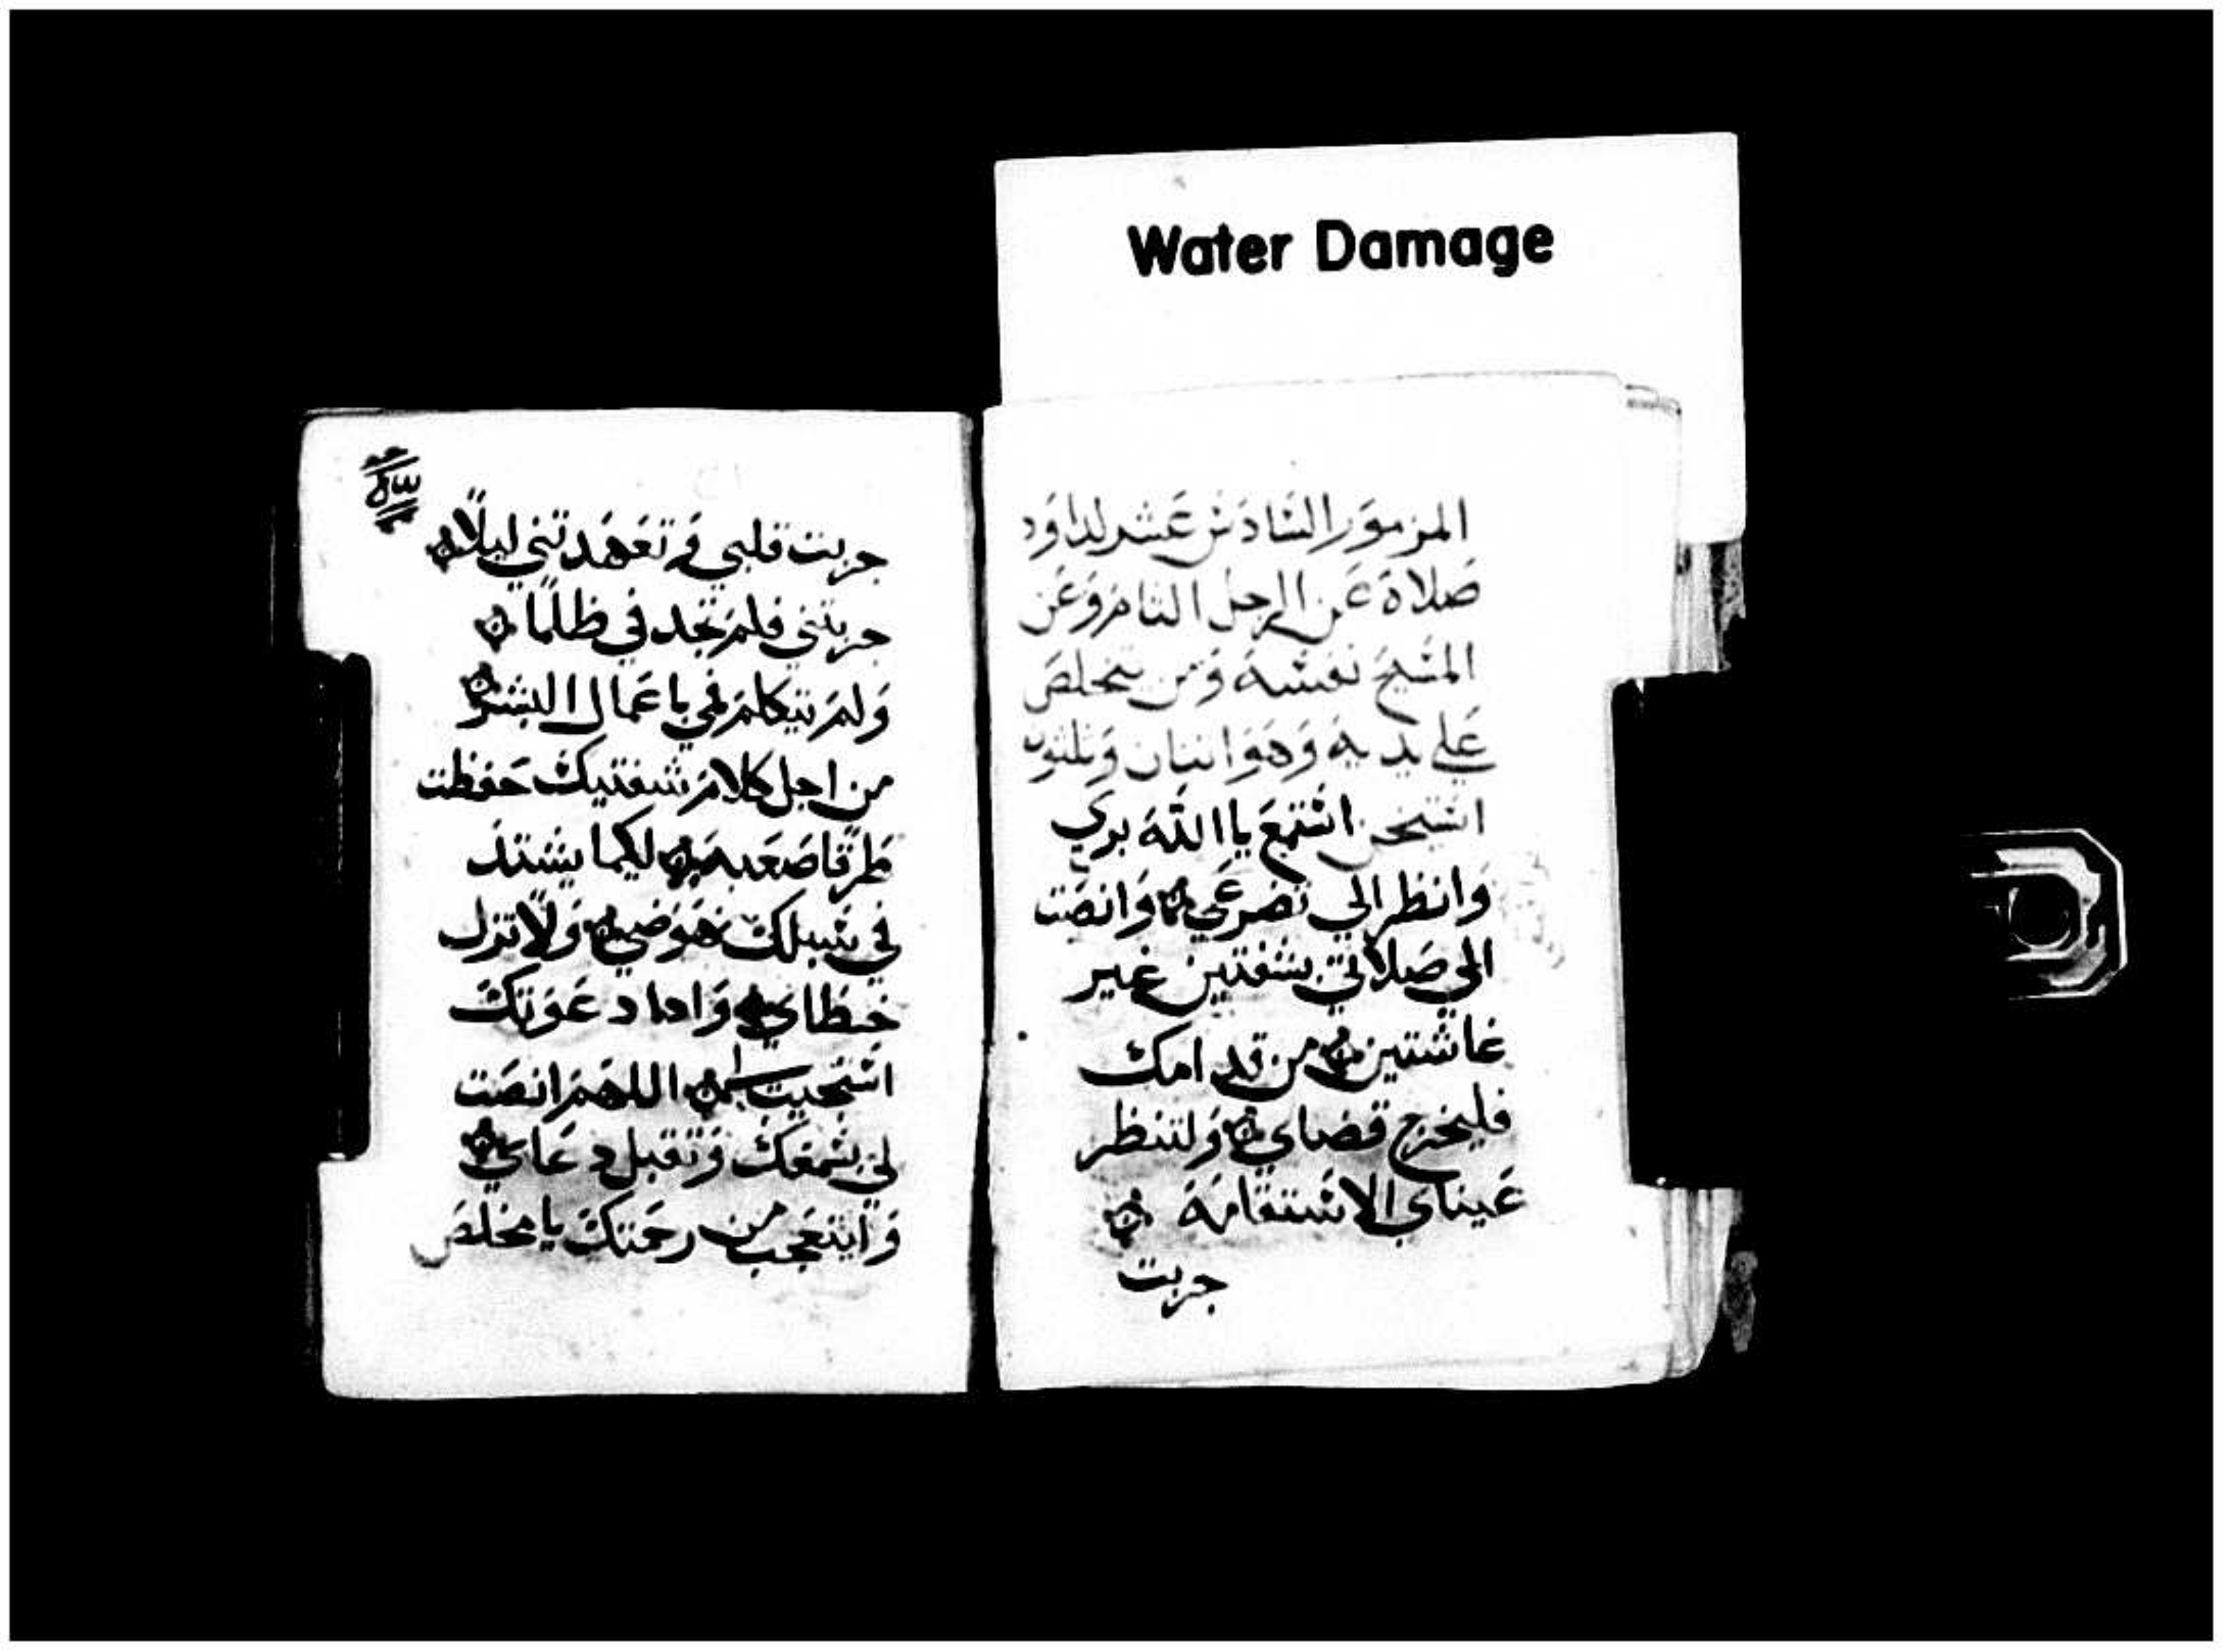 Water Damage
المزمور السادس عشر لداود
صلاة عن الرجل التام وعن
المسيح نفسه ومن يتخلص
علي يديه وهو اثنان وثلثون
استيخن استمع يا الله بري
وانظر الي تضرعي وانصت
الي صلاتي بشفتين غير
غاشتين من قدامك
فليخرج قضاي ولتنظر
عيناي الاستقامة
جربت
جربت قلبي وتعهدتني ليلًا
جربتني فلم تجد في ظلمًا
ولم يتكلم فمي باعمال البشر
من اجل كلام شفتيك حفظت
طرقا صعبه لكيما يشتد
في سبلك نهوضي ولا تزل
خطاي واذا دعوتك
استجبت لي اللهم انصت
لي بسمعك وتقبل دعاي
وليتعجب من رحمتك يا مخلص